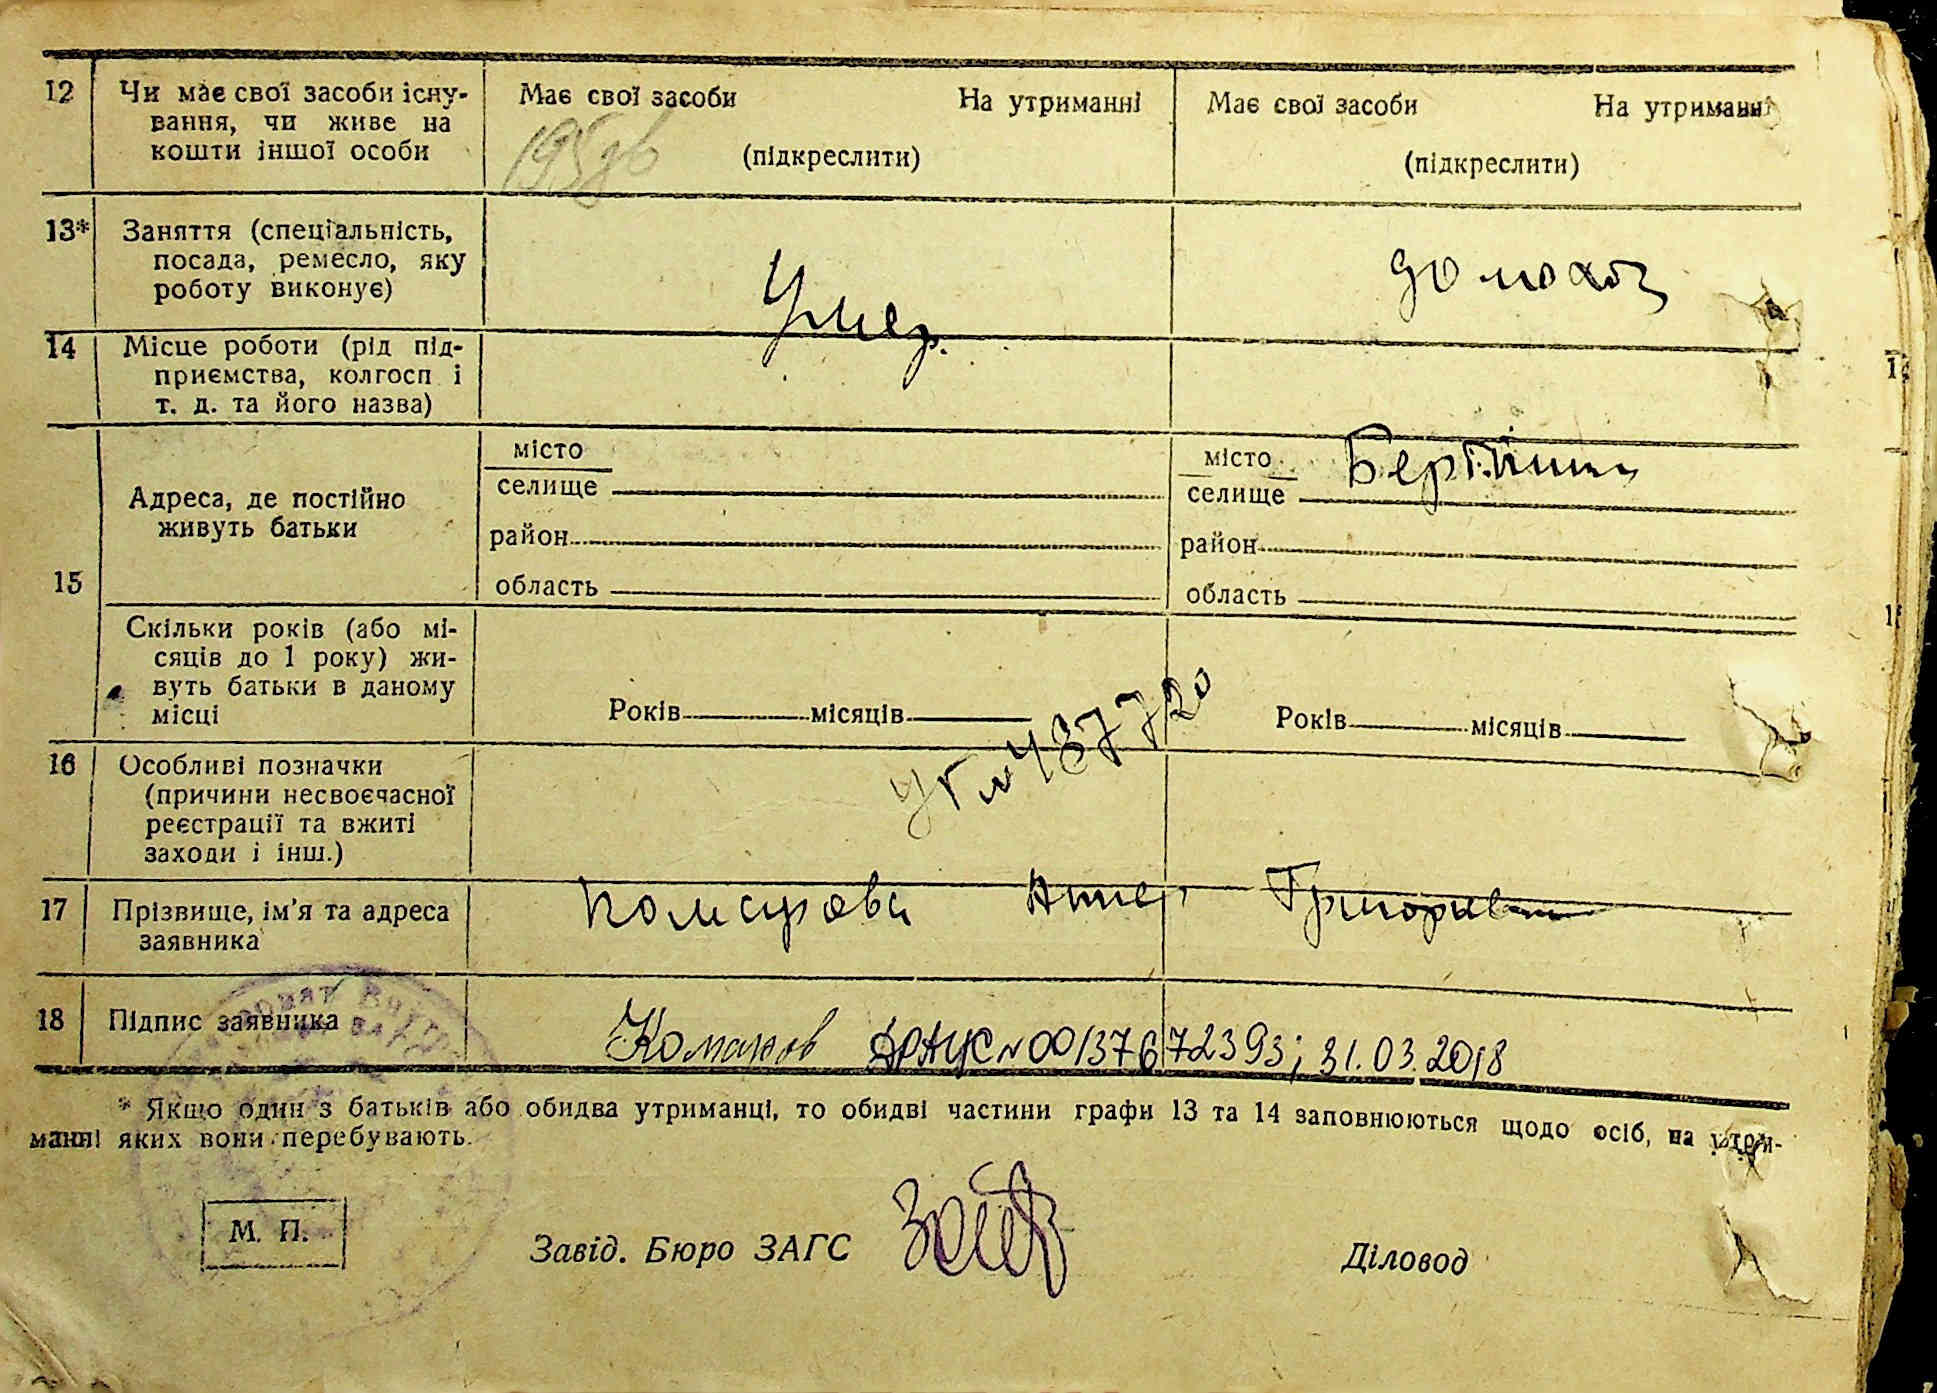 12 Чи має свої засоби існу- Має свої засоби На утриманні Має свої засоби На утриманні
вання, чи живе на
кошти іншої особи (підкреслити) (підкреслити)
13* Заняття (спеціальність,
посада, ремесло, яку домохоз
роботу виконує) Умер.
14 Місце роботи (рід під-
приємства, колгосп і
т. д. та його назва)
місто місто
Адреса, де постійно селище селище
живуть батьки район район
15 область область
Скільки років (або мі-
сяців до 1 року) жи-
вуть батьки в даному
місці Років місяців Років місяців
16 Особливі позначки
(причини несвоєчасної
реєстрації та вжиті
заходи і інш.)
17 Прізвище, ім'я та адреса
заявника
18 Підпис заявника №00137672393; 31.03.2018
* Якщо один з батьків або обидва утриманці, то обидві частини графи 13 та 14 заповнюються щодо осіб, на утри-
манні яких вони перебувають.
М. П. Завід. Бюро ЗАГС Діловод